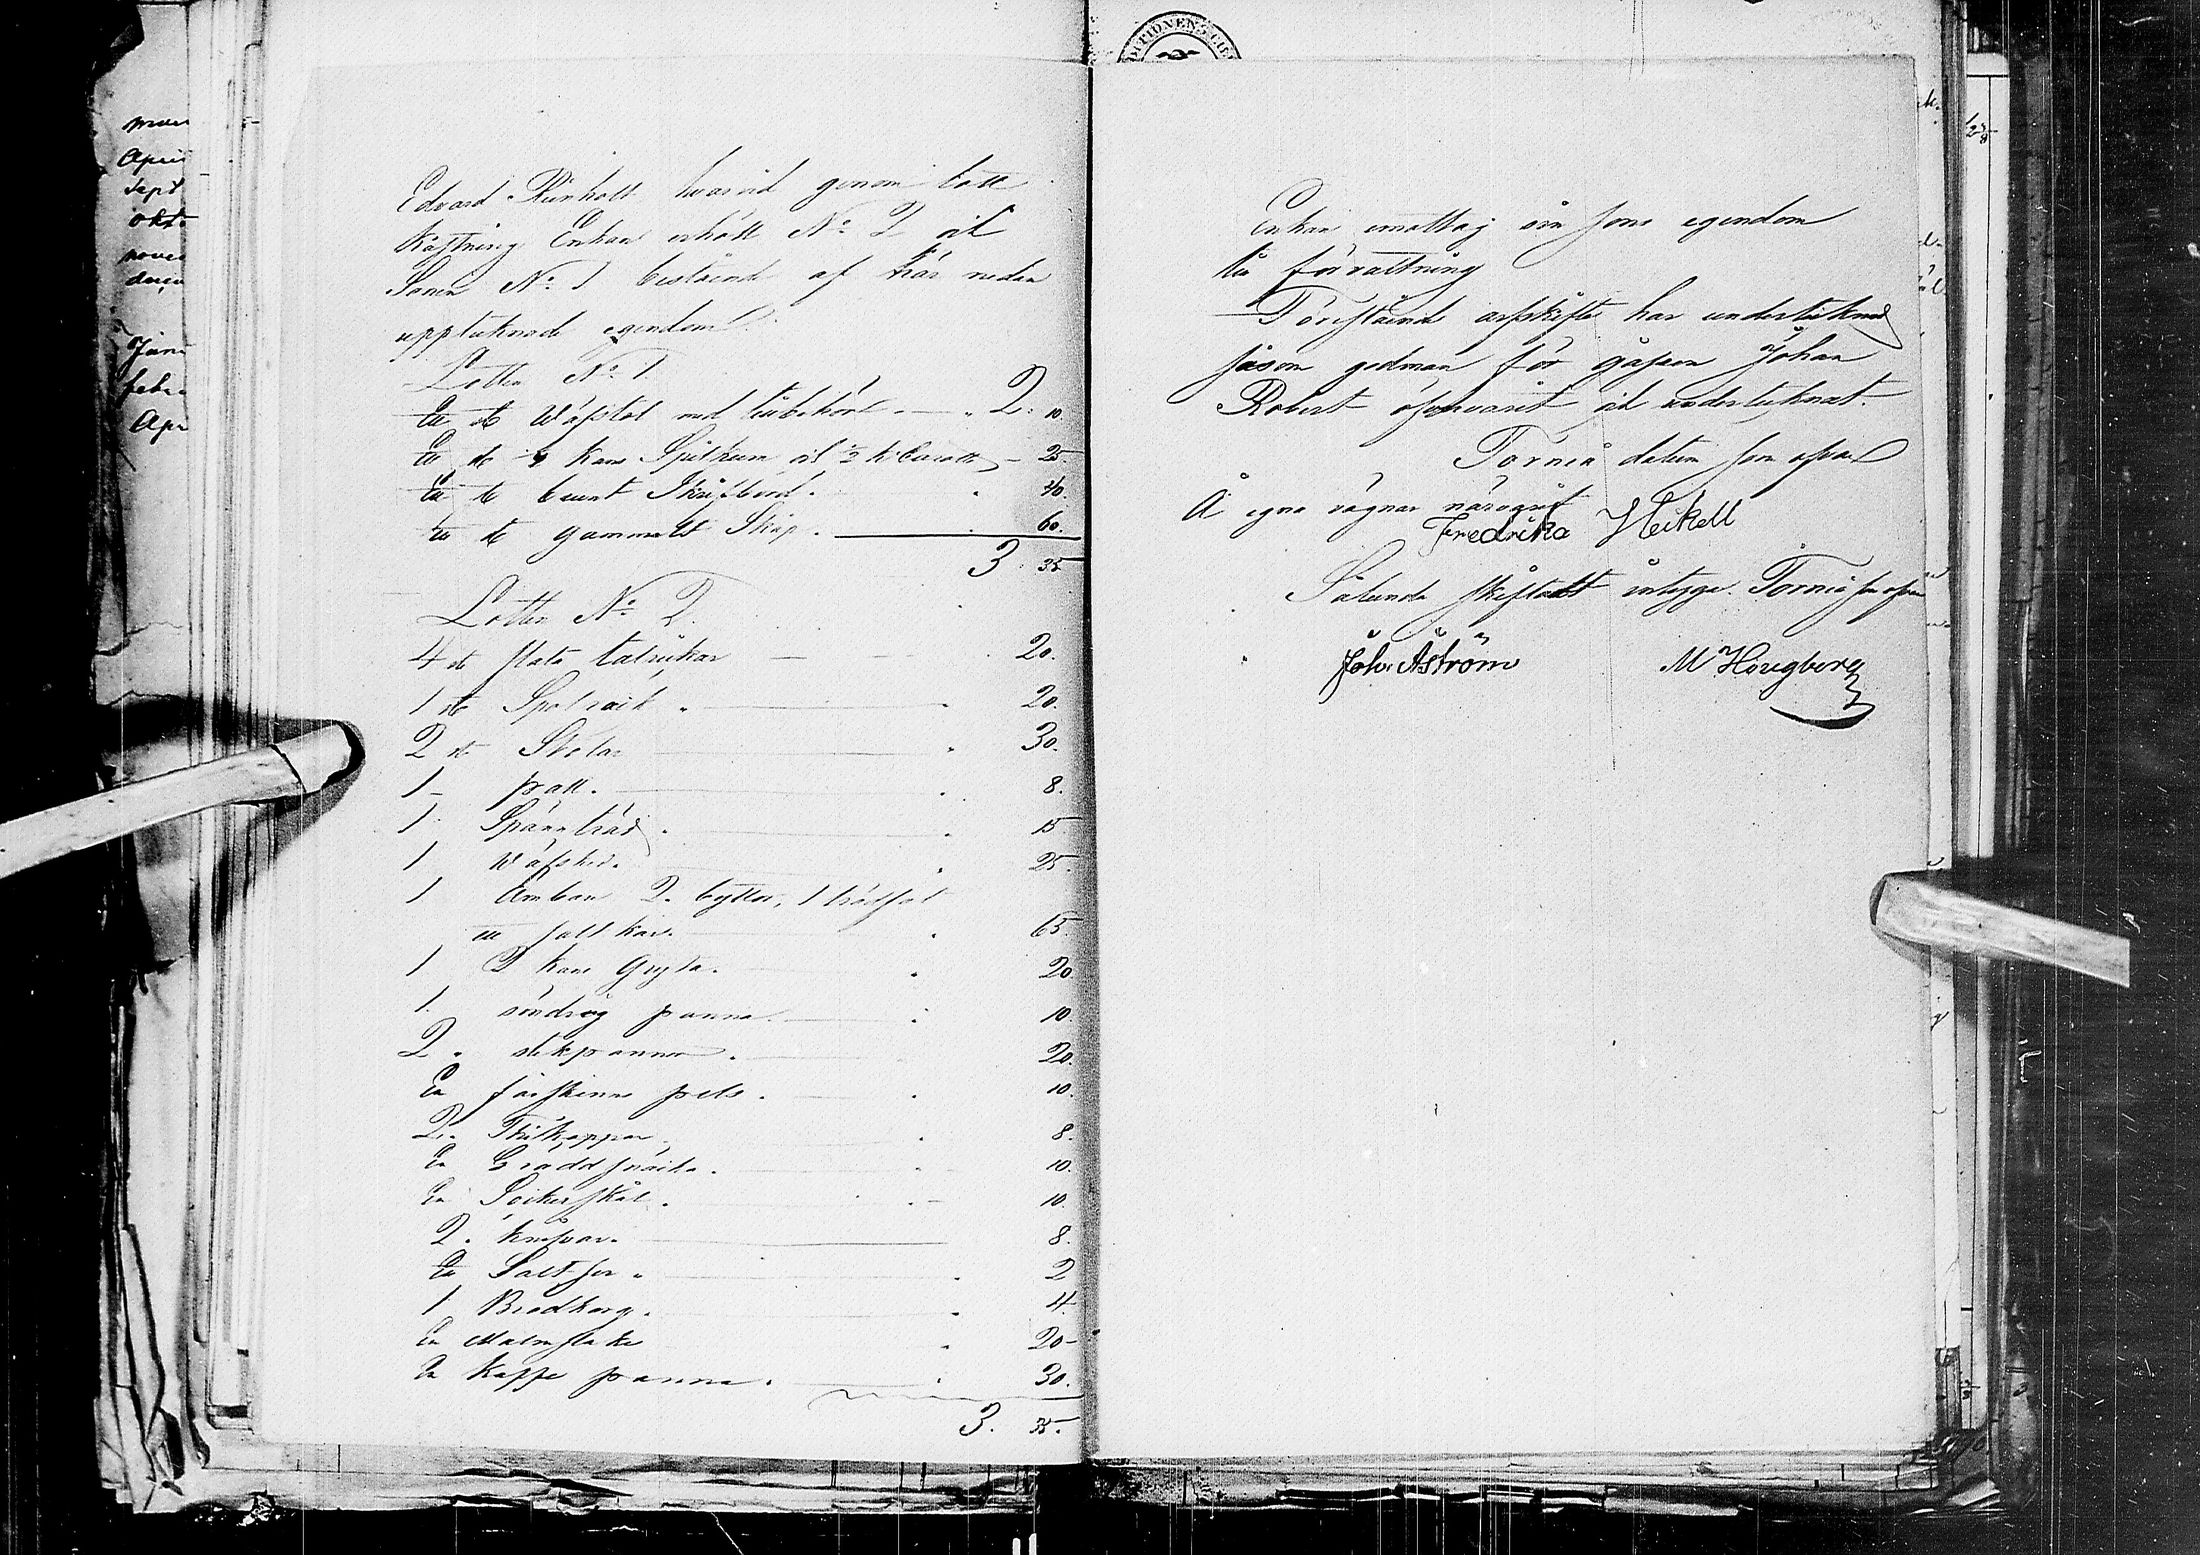 Edvard Reinholt hvarvid genom lått
kastning Enkan erhölt No 2 och
Sonen No 1 bestående af här nedan
upptecknade egendom
Lotten No 1.
En st Wäfstol med tillbehör 2. 10.
En st 4 kans Spilkum och 1/2 k: Caraff 25.
En st brunt Skrifbord. 40.
En st gammalt Skåp. 60.
3 35
Lotten No 2.
4 st flata talrickar 20.
1 st Spolrock 20.
2 st Stolar 30.
1 pall. 8.
1 Spännträd. 15
1 Wäfsked. 25.
1 Ämbar 2. byttor, 1 trädfat
ett salt kar. 65.
1 2 kans Gryta. 20.
1. söndrig panna. 10.
2. stekpannor. 20.
En fårskinns pels. 10.
2. Thékoppar. 8.
En Gräddsnäcka. 10.
En Sockerskål. 10.
2. knifvar. 8.
En Saltser. 2
1 Brödkorg. 4.
En Malmstake 20
En Kaffe panna. 30.
3. 35.
Enkan emottog sin sons egendom
till förvaltning
Förestående arfskifte har undertecknad
såsom godman för gåssen Johan
Robert öfvervarit och undertecknat.
Torneå datum som ofvan
Å egna vägnar närvarit
Fredrika Heikell
Sålunda skiftadt intyga. Torneå som ofvan
Joh. Åström M Hougberg